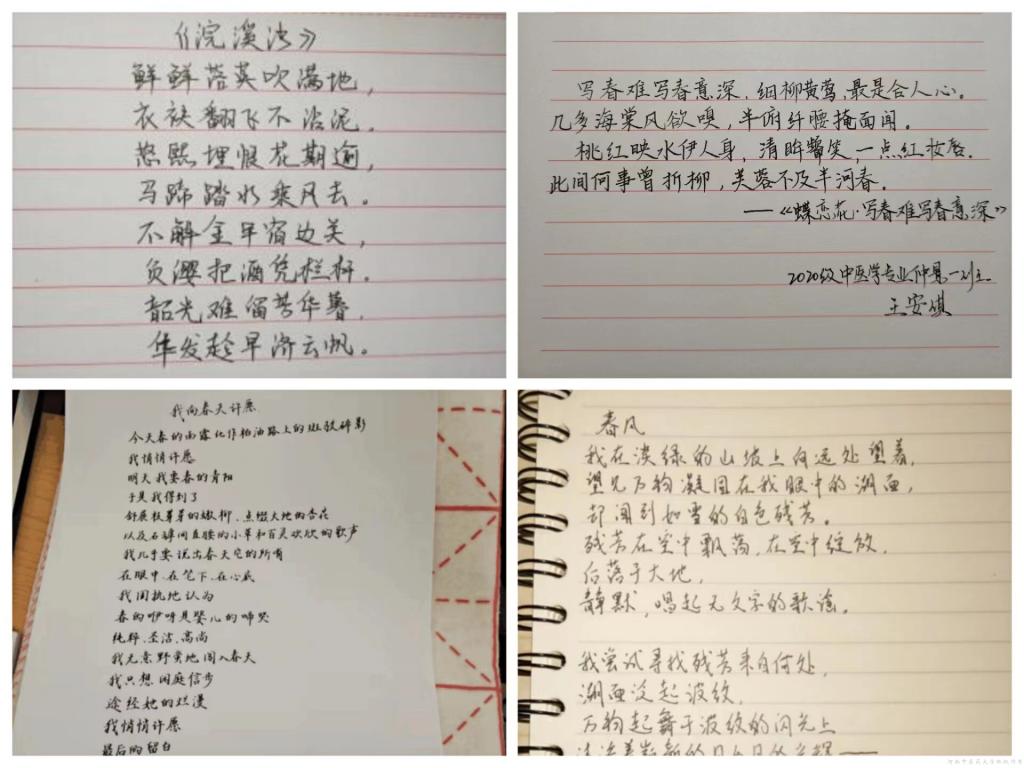 《浣溪沙》
鲜鲜落英吹满地，
衣袂翻飞不沾泥。
愁熙埋恨花期逾，
马蹄踏水乘风去。
不解金早宿边关，
负缨把酒凭栏杆。
韶光难留芳华暮，
华发趁早济云帆。
写春难写春意深，细柳黄莺，最是合人心。
几多海棠风欲嗅，半俯纤腰掩面闻。
桃红映水伊人身，清眸颦笑，一点红妆唇。
此间何事曾折柳，芙蓉不及半河春。
——《蝶恋花·写春难写春意深》
2020级中医学专业仲景一班
王安琪
我向春天许愿
今天春的雨露化作柏油路上的斑驳碎影
我悄悄许愿
明天我要春的青阳
于是我得到了
舒展枝芽芽的嫩柳、点缀大地的杏花
以及石罅间直腰的小草和百灵欢欣的歌声
我几乎要说出春天它的所有
在眼中、在笔下、在心底
我固执地认为
春的咿呀是婴儿的啼哭
纯粹、圣洁、高尚
我无意野蛮地闯入春天
我只想闲庭信步
途经她的烂漫
我悄悄许愿
最后的留白
春风
我在淡绿的山坡上向远处望着，
望见万物凝固在我眼中的湖面，
却闻到如雪的白色残芳。
残芳在空中飘荡，在空中绽放，
后落于大地，
静默，唱起无文字的歌谣。
我尝试寻找残芳来自何处，
湖面泛起波纹，
万物起舞于波纹的闪光上